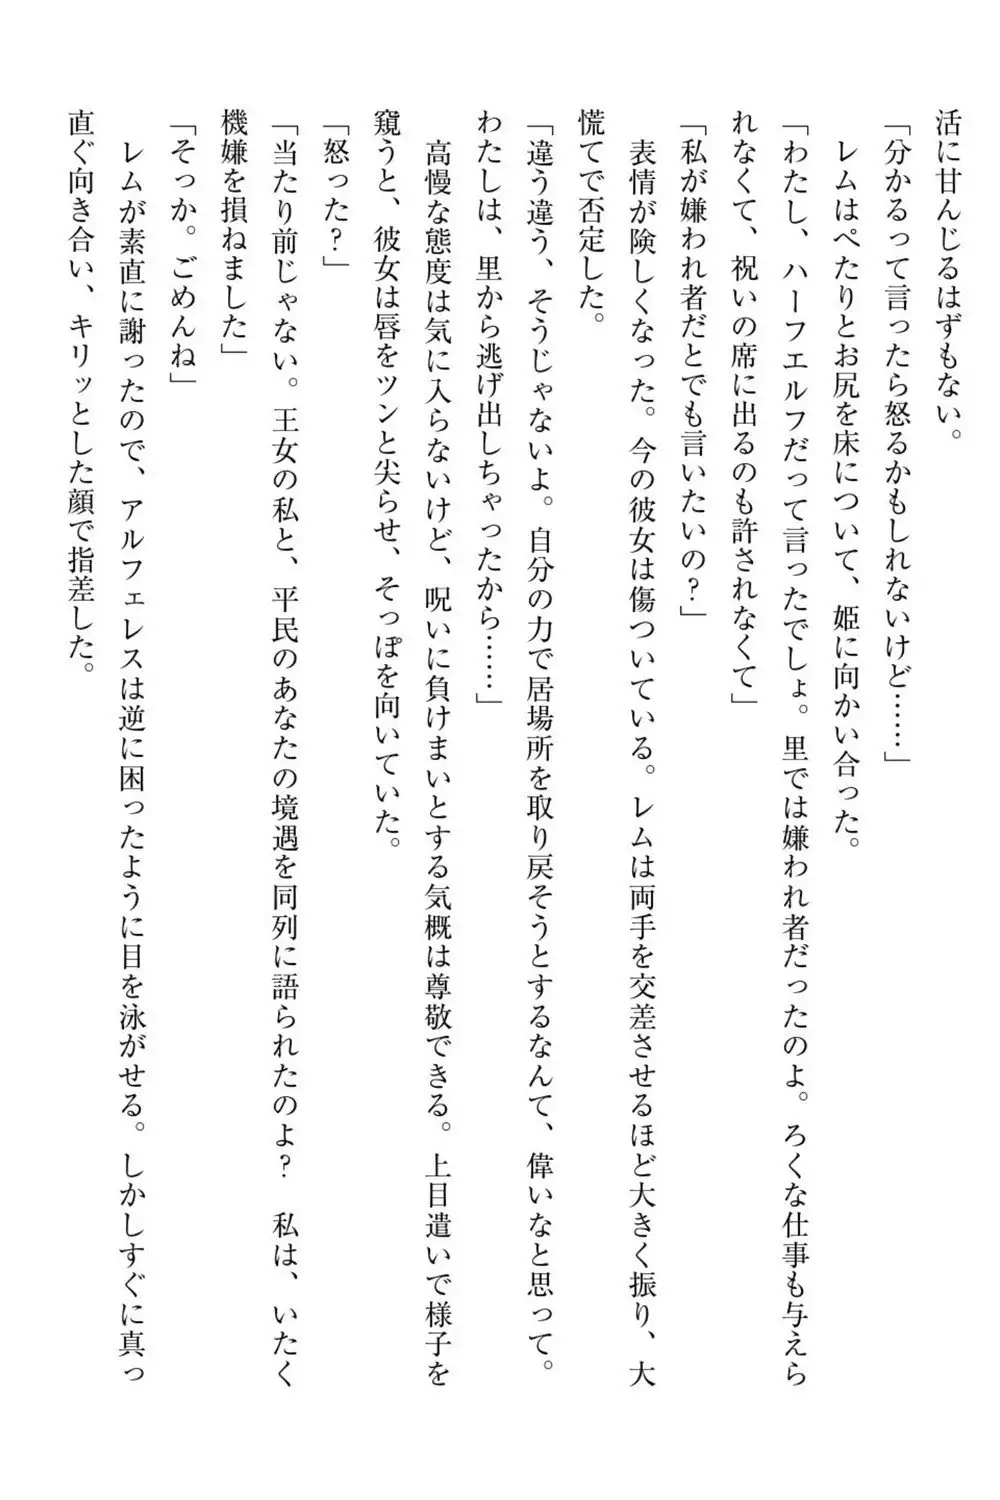 活に甘んじるはずもない。
「分かるって言ったら怒るかもしれないけど……」
　レムはぺたりとお尻を床について、姫に向かい合った。
「わたし、ハーフエルフだって言ったでしょ。里では嫌われ者だったのよ。ろくな仕事も与えら
れなくて、祝いの席に出るのも許されなくて」
「私が嫌われ者だとでも言いたいの？」
　表情が険しくなった。今の彼女は傷ついている。レムは両手を交差させるほど大きく振り、大
慌てで否定した。
「違う違う、そうじゃないよ。自分の力で居場所を取り戻そうとするなんて、偉いなと思って。
わたしは、里から逃げ出しちゃったから……」
　高慢な態度は気に入らないけど、呪いに負けまいとする気概は尊敬できる。上目遣いで様子を
窺うと、彼女は唇をツンと尖らせ、そっぽを向いていた。
「怒った？」
「当たり前じゃない。王女の私と、平民のあなたの境遇を同列に語られたのよ？　私は、いたく
機嫌を損ねました」
「そっか。ごめんね」
　レムが素直に謝ったので、アルフェレスは逆に困ったように目を泳がせる。しかしすぐに真っ
直ぐ向き合い、キリッとした顔で指差した。